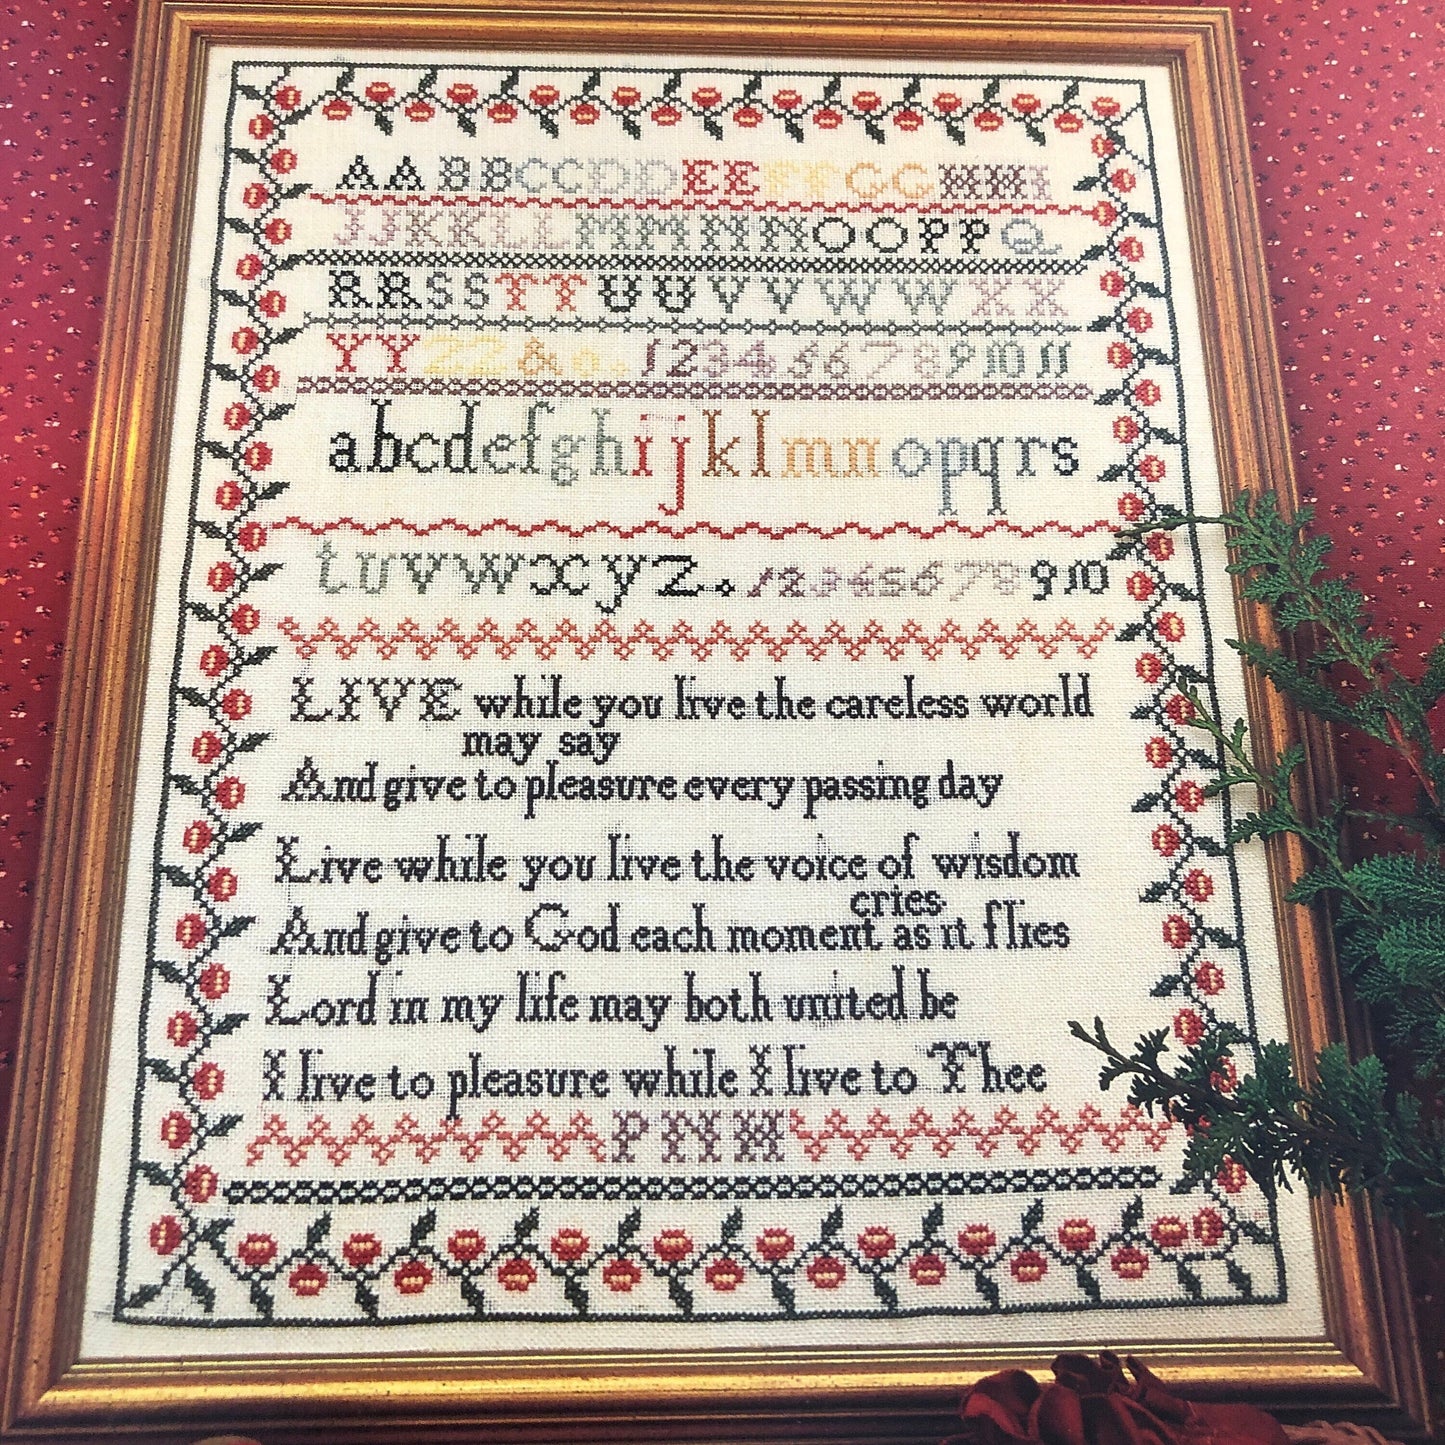 AABBCCDDEEFFGGHHI
JJKKLLMMNNOOPPQ
RRSSTTUUVVWWXX
YYZZ&o. 1234567891011
abcdefghijklmnopqrs
tuvwxyz. 12345678910
LIVE while you live the careless world
may say
And give to pleasure every passing day
Live while you live the voice of wisdom
cries
And give to God each moment as it flies
Lord in my life may both united be
I live to pleasure while I live to Thee
PNH